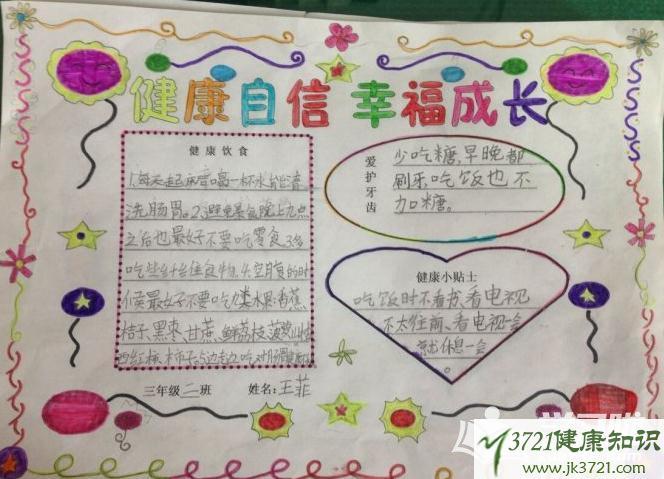 健康自信 幸福成长
健康饮食
1.每天起床胃喝一杯水能清
洗肠胃。2.避免暴食晚上九点
之后也最好不要吃零食3.多
吃些 食物.4.空腹的时
候最好不要吃 类水果:香蕉
桔子、黑枣、甘蔗、鲜荔枝、菠萝、山楂
西红柿、柿子5.边走边吃对肠胃
三年级二班 姓名:王菲
爱护牙齿
少吃糖,早晚都
刷牙吃饭也不
加糖。
健康小贴士
吃饭时不看书,看电视
不太往前、看电视一会
就休息一会。
3721健康知识
www.jk3721.com